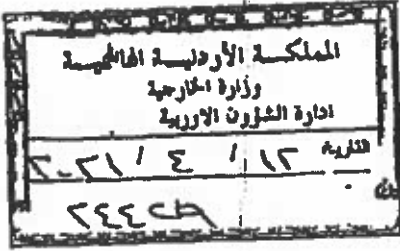 المملكة الأردنية الهاشمية
وزارة الخارجية
ادارة الشؤون الاوربية
التاريخ ١٢ / ٤ / ٢٠٢١
٢٤٤